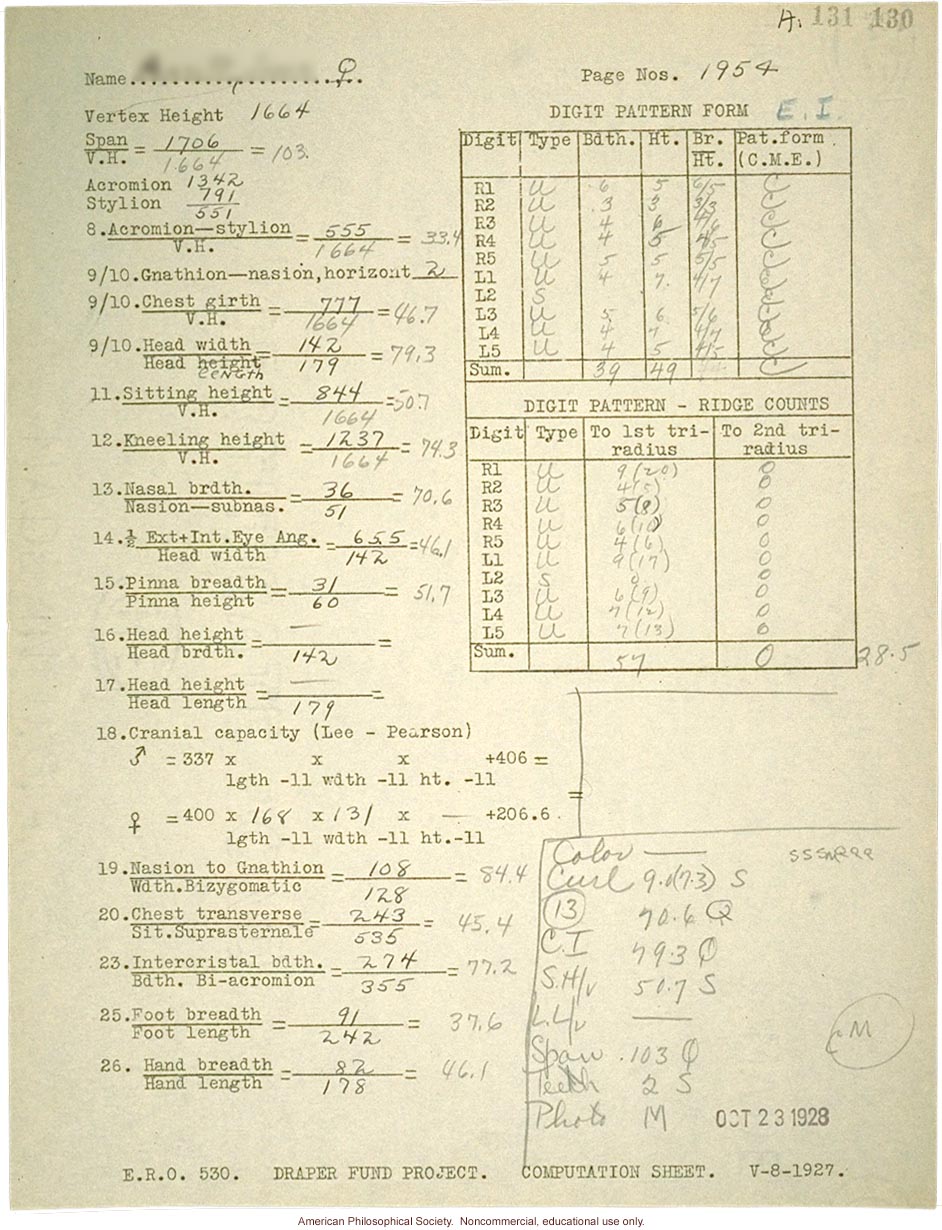 A. 131 130
Name.......................♀..
Page Nos. 1954
Vertex Height 1664
DIGIT PATTERN FORM E.I.
Span 1706
V.H. = 1664 = 103.
Acromion 1342
Stylion 791
551
8.Acromion—stylion = 555 = 33.4
V.H. 1664
9/10.Gnathion—nasion,horizont 2
9/10.Chest girth = 777 = 46.7
V.H. 1664
9/10.Head width = 142 = 79.3
Head height 179
LENGTH
11.Sitting height = 844 = 50.7
V.H. 1664
12.Kneeling height = 1237 = 74.3
V.H. 1664
13.Nasal brdth. = 36 = 70.6
Nasion—subnas. 51
14.½ Ext+Int.Eye Ang. = 65.5 = 46.1
Head width 142
15.Pinna breadth = 31 = 51.7
Pinna height 60
16.Head height = — =
Head brdth. 142
17.Head height = — =
Head length 179
18.Cranial capacity (Lee - Pearson)
♂ = 337 x x x +406 =
lgth -11 wdth -11 ht. -11
♀ = 400 x 168 x 131 x — +206.6 . =
lgth -11 wdth -11 ht.-11
19.Nasion to Gnathion = 108 = 84.4
Wdth.Bizygomatic 128
20.Chest transverse = 243 = 45.4
Sit.Suprasternale 535
23.Intercristal bdth. = 274 = 77.2
Bdth. Bi-acromion 355
25.Foot breadth = 91 = 37.6
Foot length 242
26. Hand breadth = 82 = 46.1
Hand length 178
Digit Type Bdth. Ht. Br. Pat.form
Ht. (C.M.E.)
R1 U 6 5 6/5 C
R2 U 3 3 3/3 C
R3 U 4 6 4/6 C
R4 U 4 5 4/5 C
R5 U 5 5 5/5 C
L1 U 4 7. 4/7 C
L2 S
L3 U 5 6 5/6 C
L4 U 4 7 4/7 C
L5 U 4 5 4/5 C
Sum. 39 49 C
DIGIT PATTERN - RIDGE COUNTS
Digit Type To 1st tri- To 2nd tri-
radius radius
R1 U 9(20) 0
R2 U 4(5) 0
R3 U 5(8) 0
R4 U 6(10) 0
R5 U 4(6) 0
L1 U 9(17) 0
L2 S 0 0
L3 U 6(9) 0
L4 U 7(12) 0
L5 U 7(13) 0
Sum. 57 0 28.5
Color —
Curl 9.0(7.3) S
(13) 70.6 Q
C.I 79.3 Q
S.H/v 50.7 S
L.L/v —
Span .103 Q
Teeth 2 S
Photo M
M
OCT 23 1928
E.R.O. 530. DRAPER FUND PROJECT. COMPUTATION SHEET. V-8-1927.
American Philosophical Society. Noncommercial, educational use only.